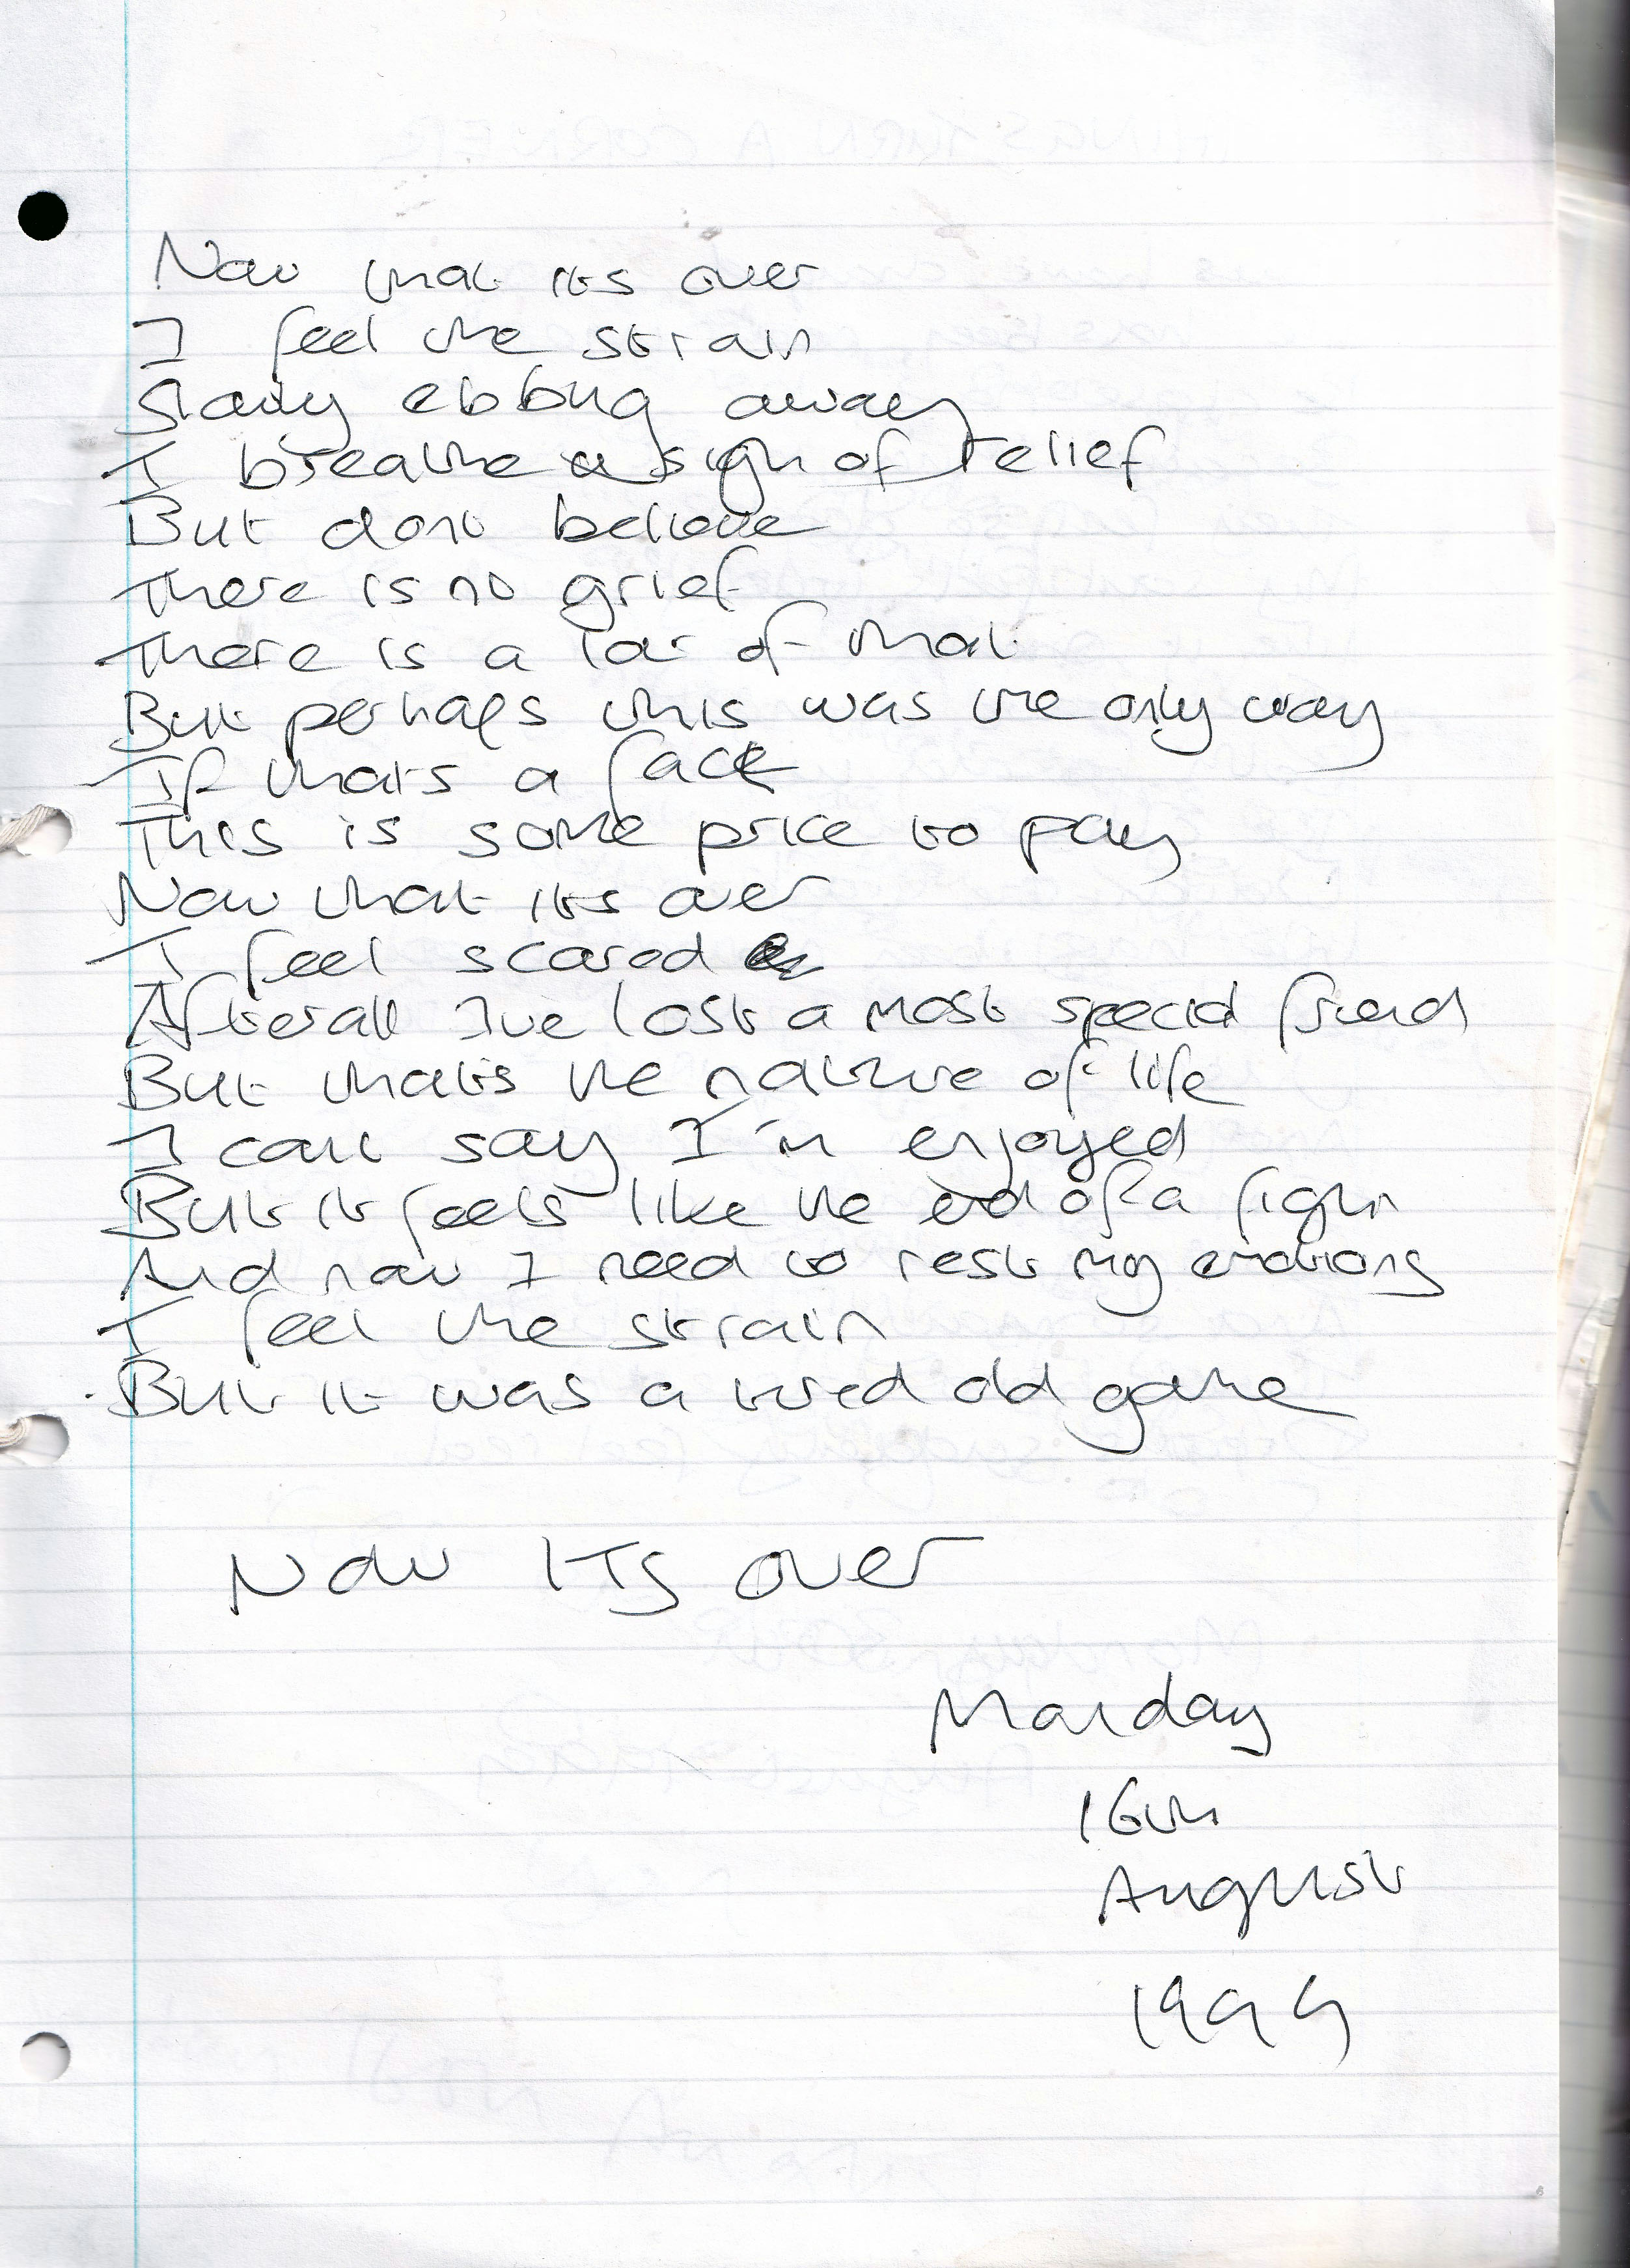 Now that its over
I feel the strain
Slowly ebbing away
I breathe a sigh of relief
But dont believe
There is no grief
There is a lot of that
But perhaps this was the only way
If thats a fact
This is some price to pay
Now that its over
I feel scared
Afterall I've lost a most special friend
But thats the nature of life
I cant say I'm enjoyed
But it feels like the end of a figh
And now I need to rest my emotions
I feel the strain
But it was a tired old game
Now ITs over
Monday
16th
August
1999